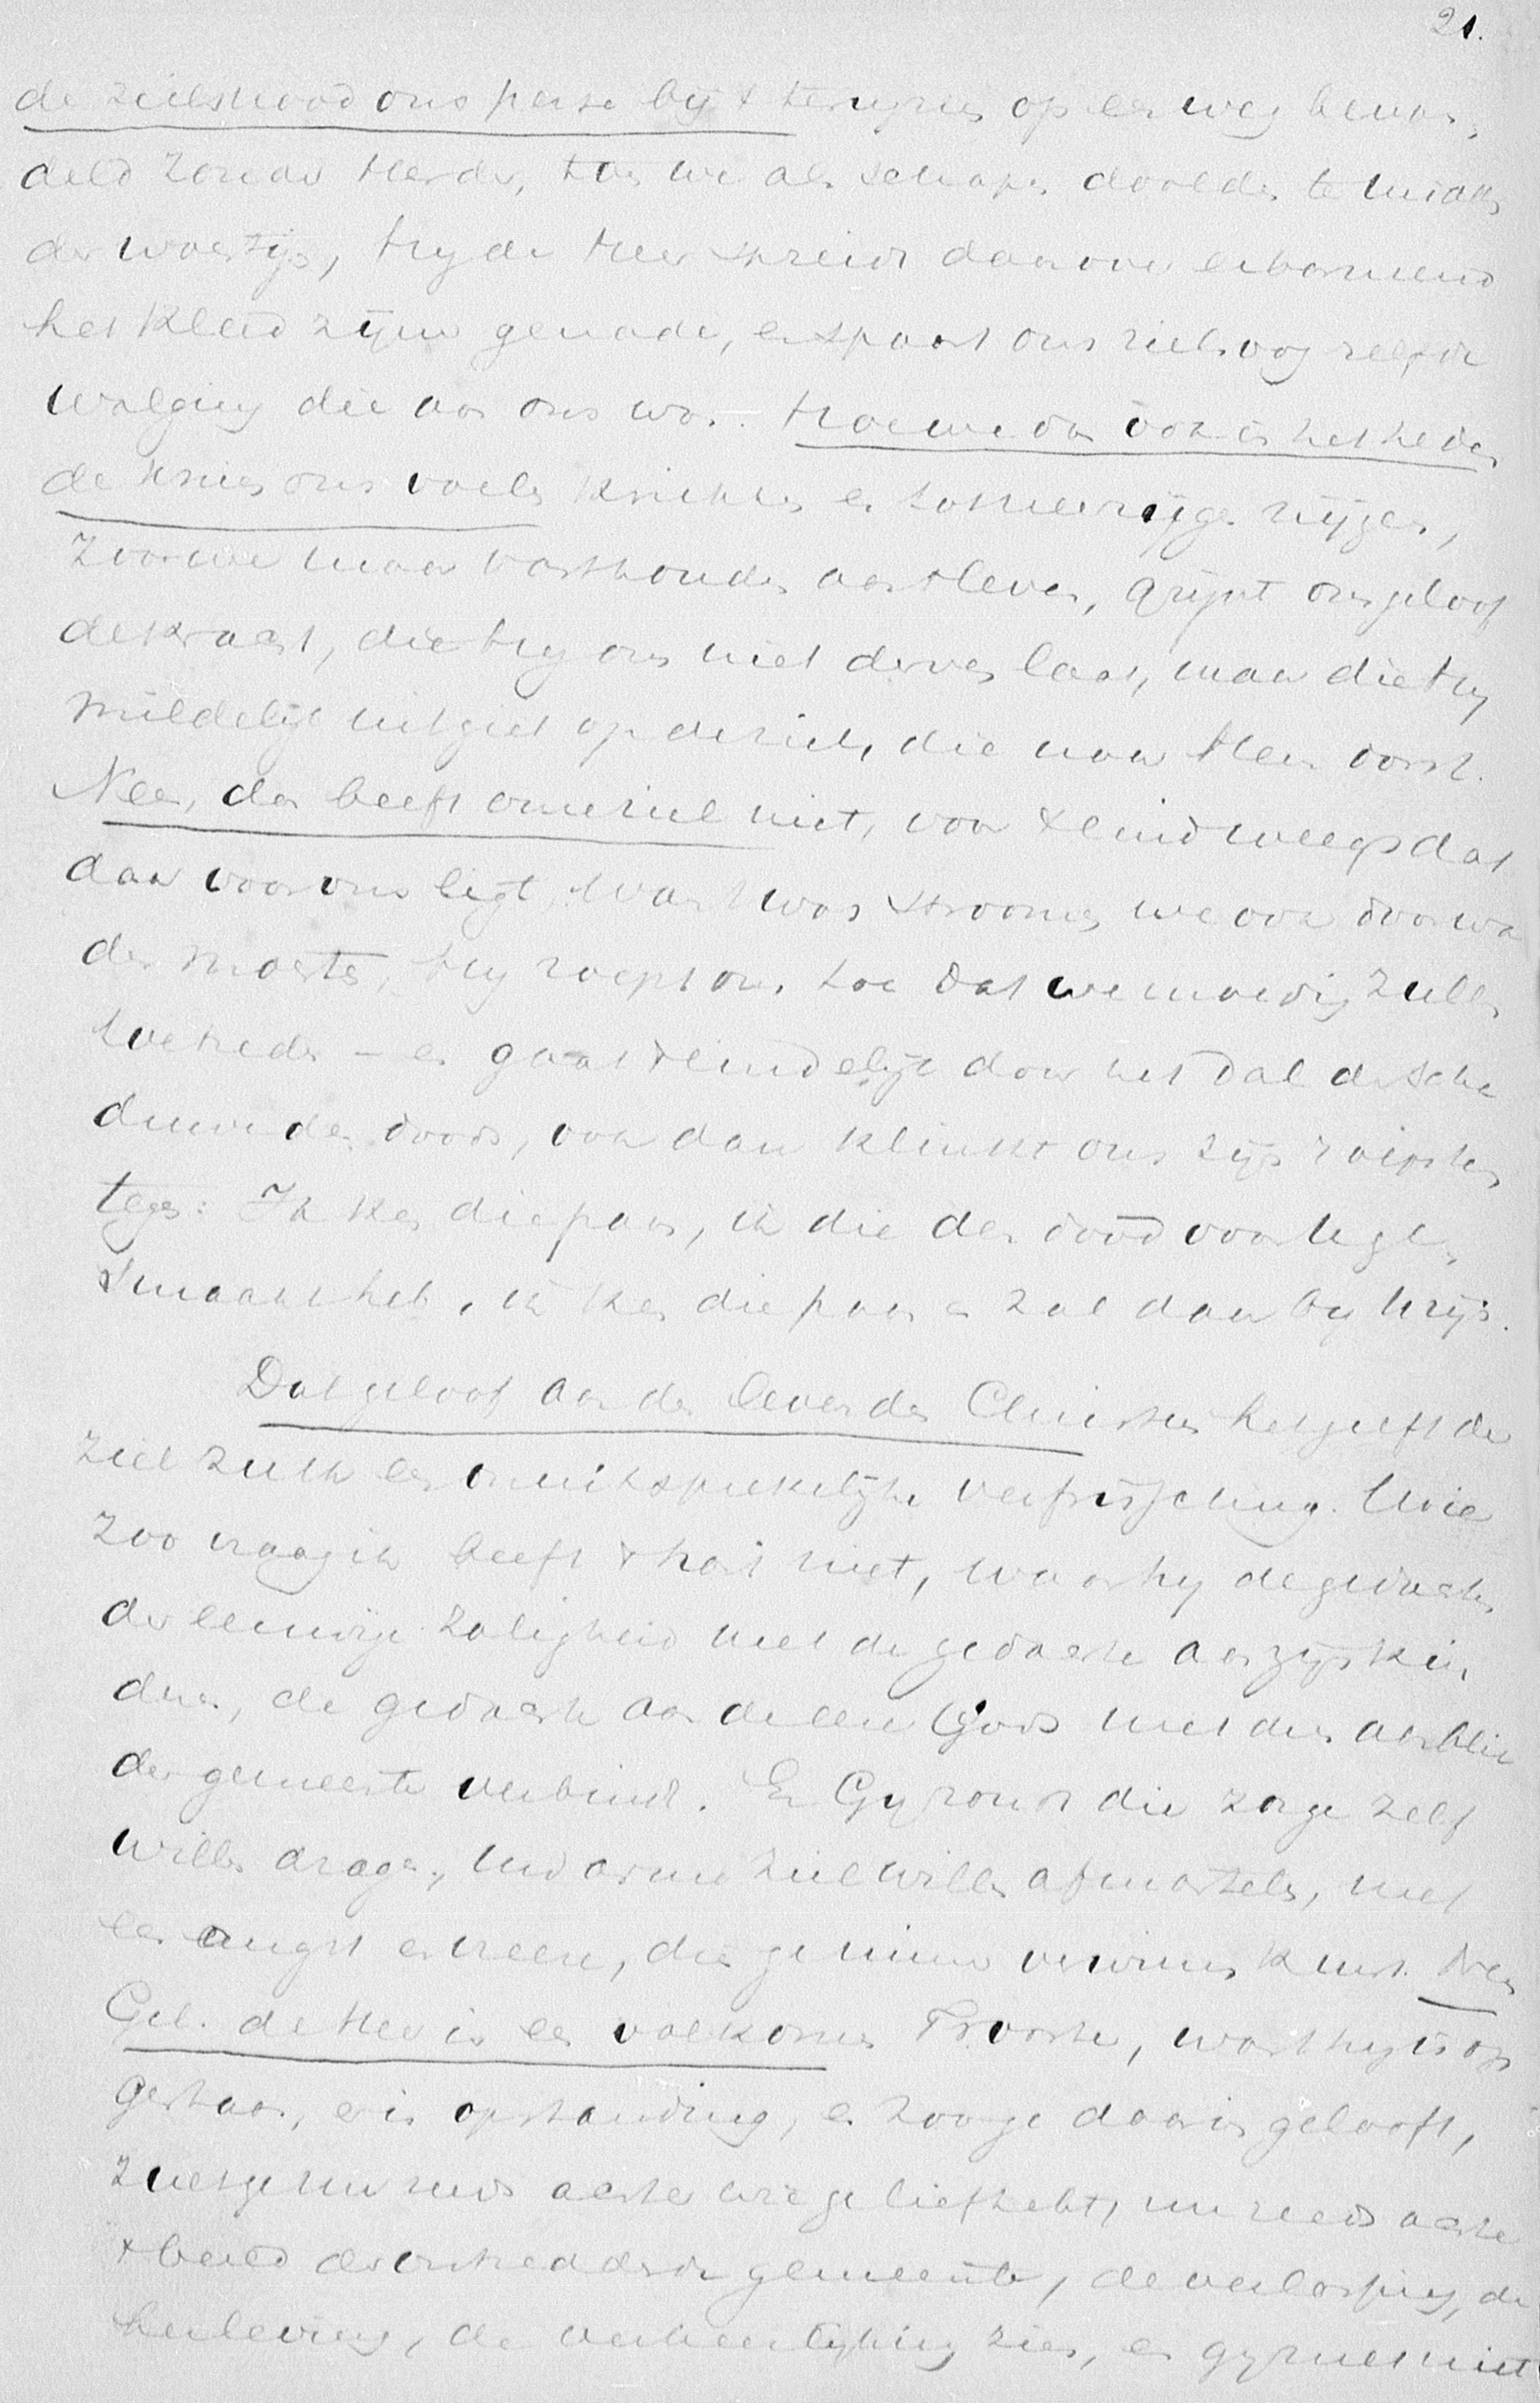 21.
de zielsnood ons perse by & terugzien op een weg bewan-
deld zonder Herder, toen we als schapen doolden te midden
der woestijn, Hy de Heer spreidt daarover erbarmend
het kleed zijner genade, en spaart ons zielsoog zelf de
walging die aan ons was. Hoe we dan ook in het heden
de knieen ons voelen knikken en
zoo we maar vasthouden aan & leven, grijpt ons geloof
de kracht, die Hy ons niet derven laat, maar die Hy
mildelijk uitgiet op de ziel, die naar Hem dorst.
Neen, dan beeft onze ziel niet, voor & eind weegs dat
daar voor ons ligt, want wat stroomen we ook doorwa
den moesten, Hy roept ons toe dat we moedig zullen
toetreden – en gaat & eindelijk door het dal der scha
duwe des doods, ook dan klinkt ons zijn roepstem
tegen: Ik ken die paden, ik die den dood voor u ge-
smaakt heb, ik ken die paden en zal daar by u zijn.
Dat geloof aan den levenden Christus het geeft de
ziel zulk een onuitsprekelijke verfrissching. Wien
zoo vraag ik beeft & hart niet, waar hy de gedachte
der eeuwige zaligheid met de gedachte aan zijn kin
deren, de gedachte aan de eere Gods met den aanblik
der gemeente verbindt. En Gy zoudt die zorge zelf
willen dragen, uw arme ziel willen afmartelen, met
een angst en vreeze, die ge nimmer verwinnen kunt. Neen
Gel. de Heer is een volkomen Trooster, want hy is op
gestaan, er is opstanding, en zoo ge daarin gelooft,
zult ge nu reeds achter wie ge liefhebt, nu reeds achter
& beeld der gemeente, de verlossing, de
herleving, de verheerlyking zien, en gy zult niet